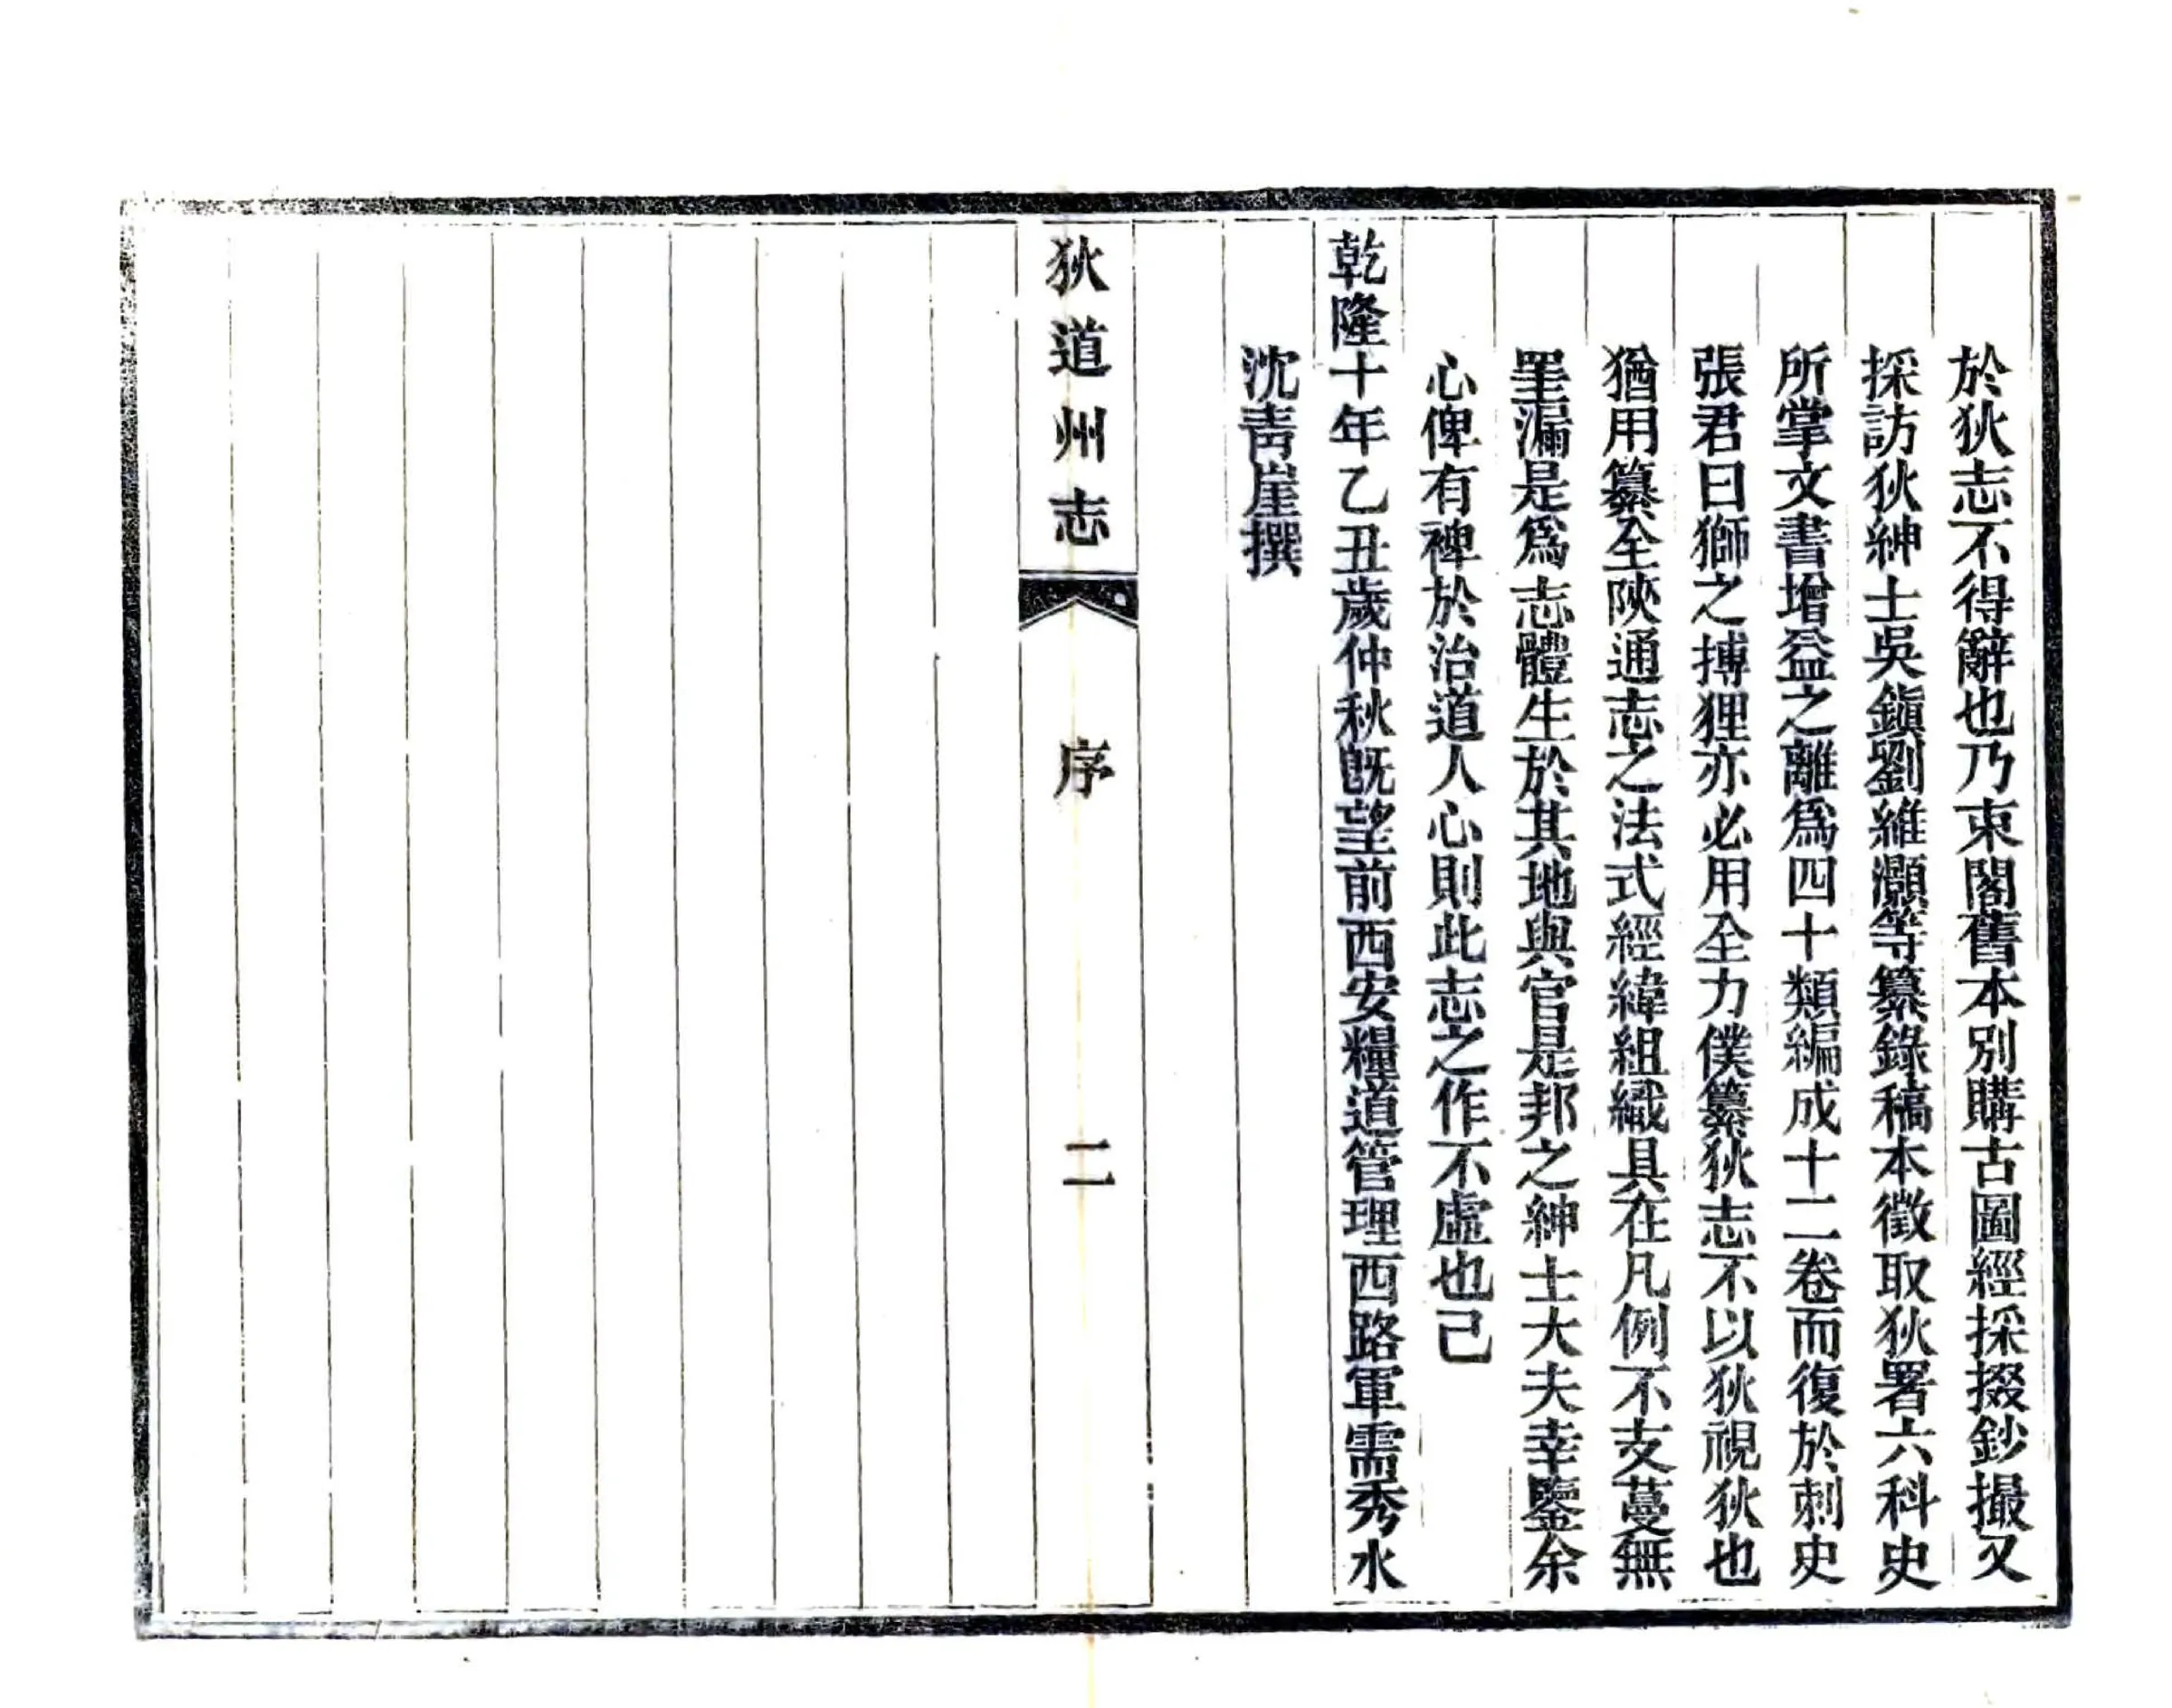 於狄志不得辭也乃束閣舊本別購古圖經採掇鈔撮又
採訪狄紳士吳鎭劉維灝等纂錄稿本徵取狄署六科史
所掌文書增益之離爲四十類編成十二卷而復於刺史
張君曰獅之搏狸亦必用全力僕纂狄志不以狄視狄也
猶用纂全陝通志之法式經緯組織具在凡例不支蔓無
罣漏是爲志體生於其地與官是邦之紳士大夫幸鑒余
心俾有裨於治道人心則此志之作不虛也己
乾隆十年乙丑歲仲秋旣望前西安糧道管理西路軍需秀水
沈靑崖撰
狄道州志
序
二